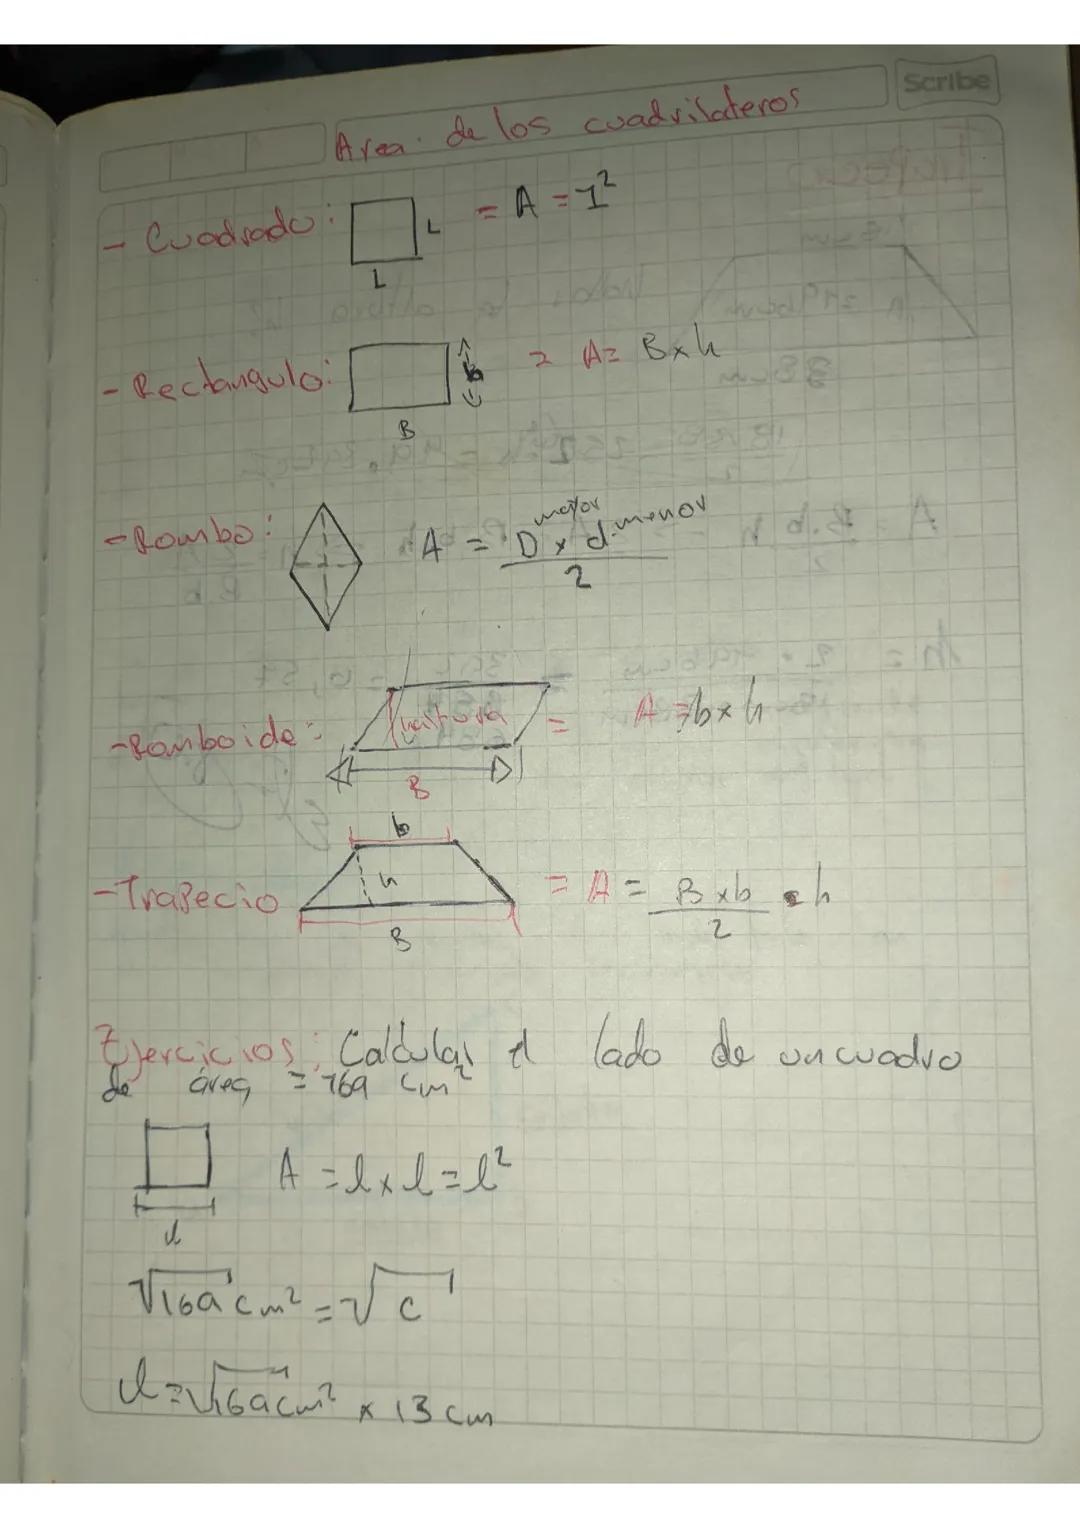 Scribe
Area de los cuadrilateros
- Cuadrado: L = A = 1²
L
- Rectangulo: b = A = B x h
B
- Rombo: A = D mayor x d. menor
2
- Romboide: altura = A = b x h
B
b
- Trapecio h = A = B x b . h
B 2
Ejercicios: Calcular el lado de un cuadro
de área = 169 cm²
A = l x l = l²
l
√169 cm² = √c
l = √169 cm² x 13 cm